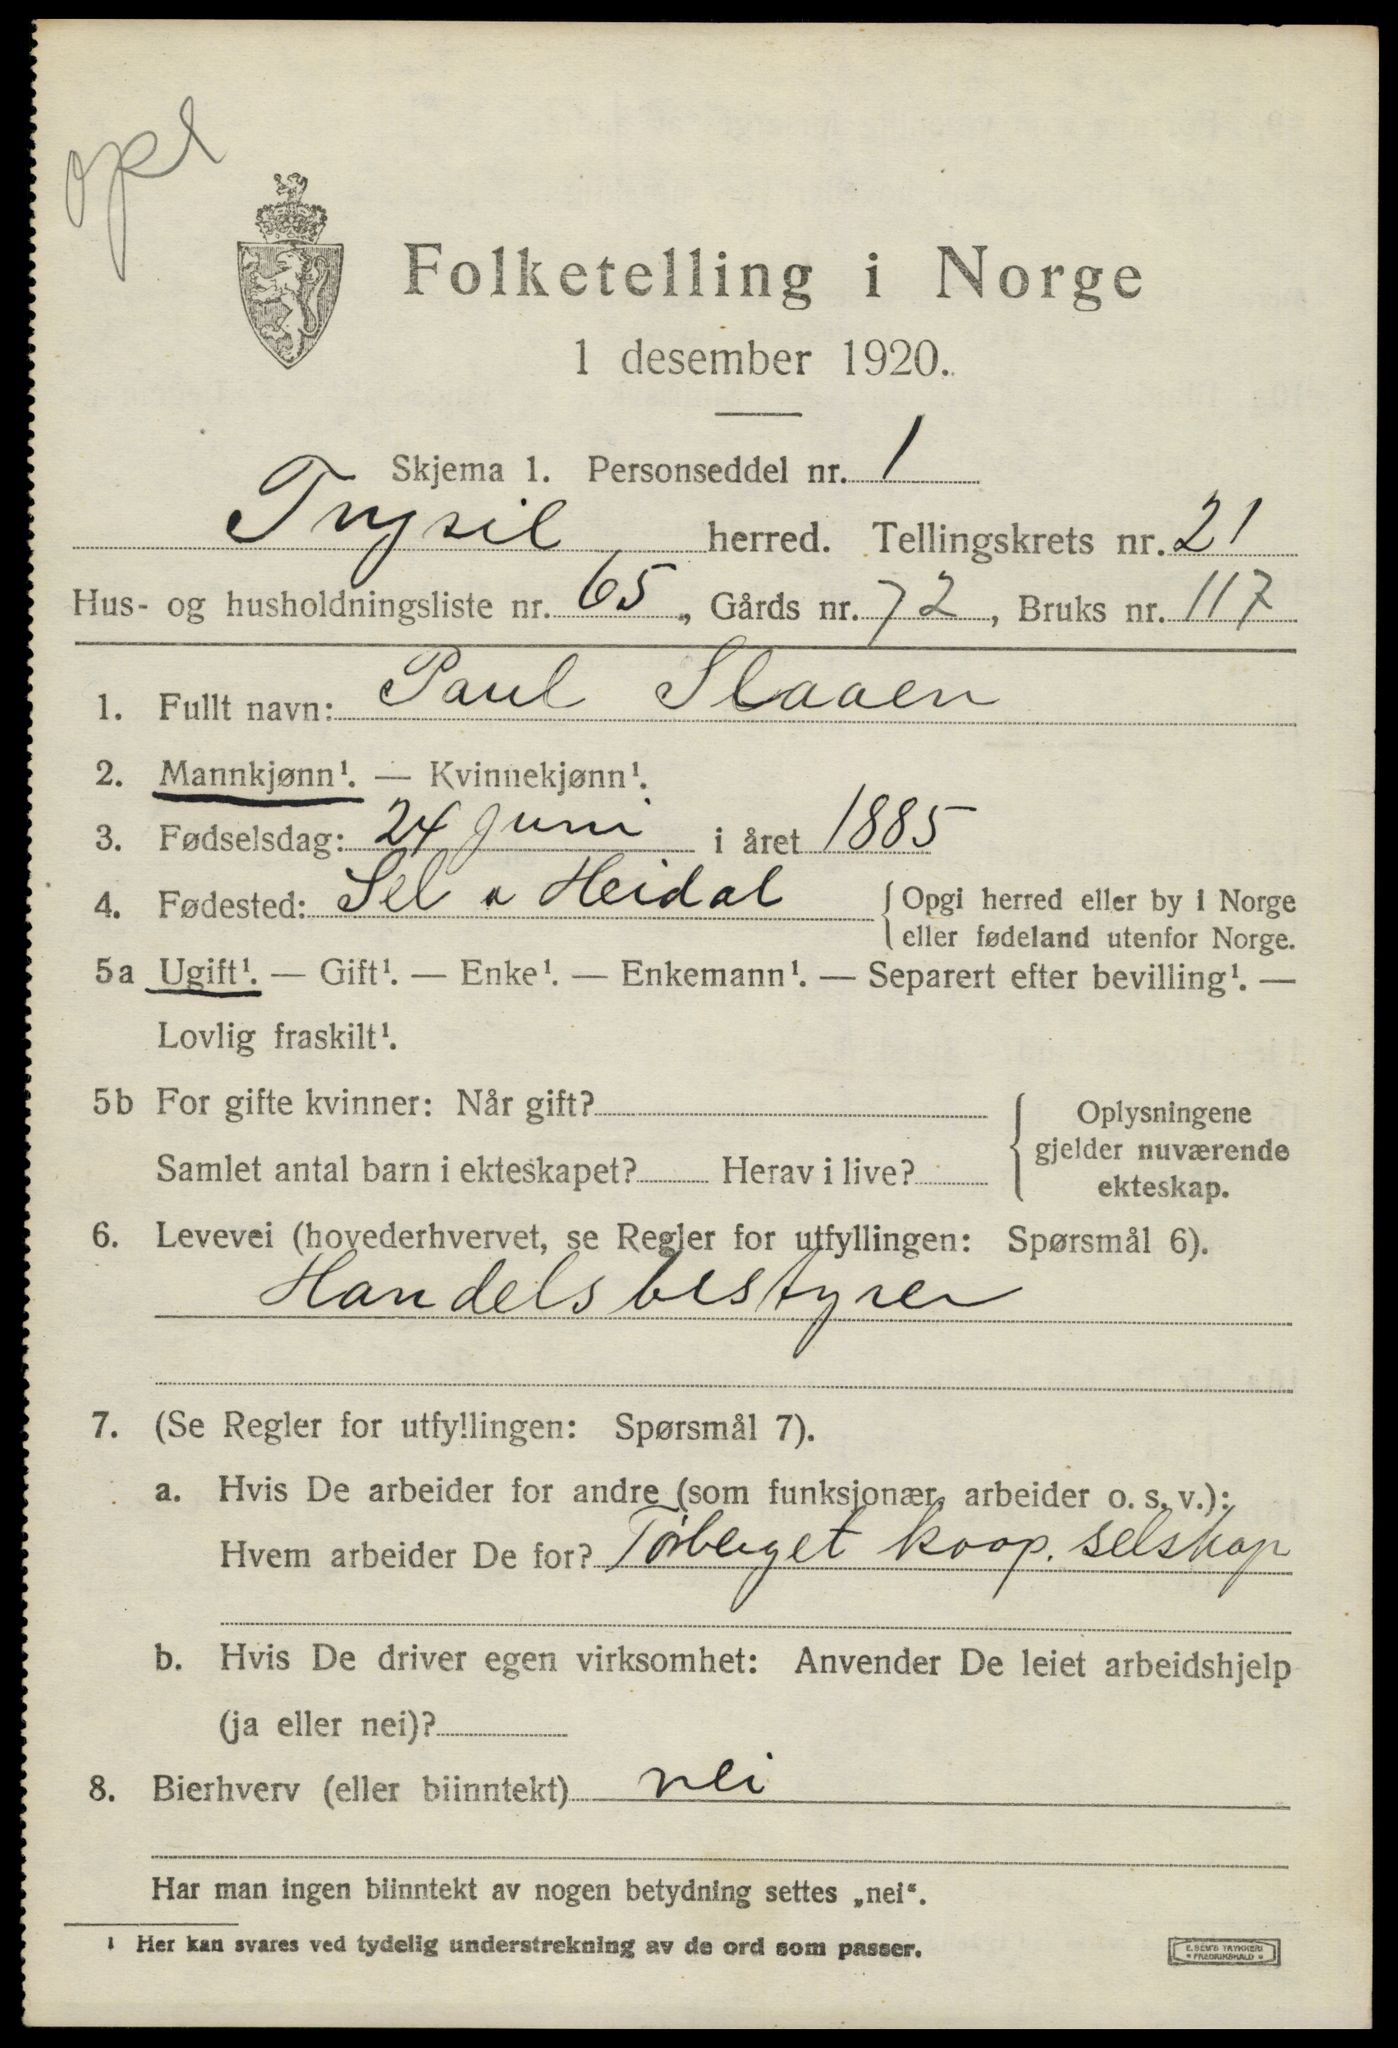 opl
Folketelling i Norge
1 desember 1920.
Skjema 1. Personseddel nr. 1
Trysil herred. Tellingskrets nr. 21
Hus- og husholdningsliste nr. 65, Gårds nr. 72, Bruks nr. 117
1. Fullt navn: Paul Slaaen
2. Mannkjønn¹. — Kvinnekjønn¹.
3. Fødselsdag: 24 juni i året 1885
4. Fødested: Sel o Heidal {Opgi herred eller by i Norge
eller fødeland utenfor Norge.
5a Ugift¹. — Gift¹. — Enke¹. — Enkemann¹. — Separert efter bevilling¹. —
Lovlig fraskilt¹.
5b For gifte kvinner: Når gift?
Samlet antal barn i ekteskapet? Herav i live?
Oplysningene
gjelder nuværende
ekteskap.
6. Levevei (hovederhvervet, se Regler for utfyllingen: Spørsmål 6).
Handelsbestyrer
7. (Se Regler for utfyllingen: Spørsmål 7).
a. Hvis De arbeider for andre (som funksjonær, arbeider o. s. v.):
Hvem arbeider De for? Tørberget koop. selskap
b. Hvis De driver egen virksomhet: Anvender De leiet arbeidshjelp
(ja eller nei)?
8. Bierhverv (eller biinntekt) nei
Har man ingen biinntekt av nogen betydning settes „nei“.
¹ Her kan svares ved tydelig understrekning av de ord som passer.
E. SEM'S TRYKKERI
FREDRIKSHALD